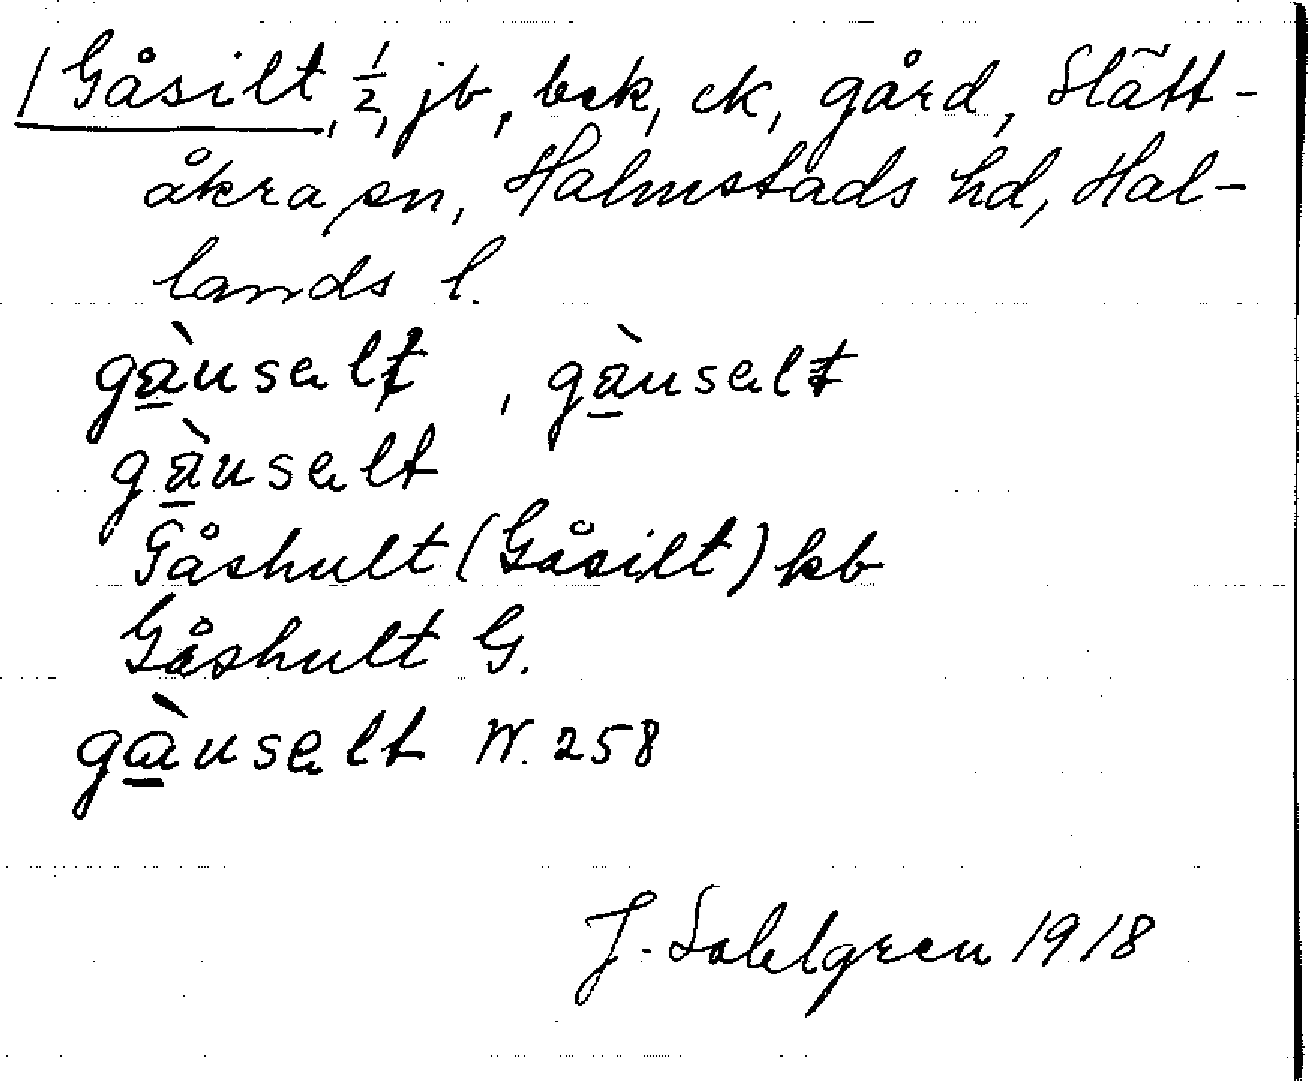 / Gåsilt, ½, jb, bek, ek, gård, Slätt-
åkra sn, Halmstads hd, Hal-
lands l.
gàusalt, gàusalt
gàusalt
Gåshult (Gåsilt) kb
Gåshult G.
gàusalt W. 258
J. Sahlgren 1918